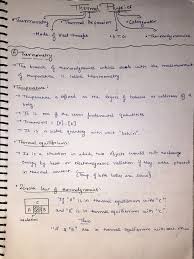 Thermal Physics
Thermometry Thermal Expansion Calorimetry
Mode of Heat transfer K.T.G Thermodynamics
Thermometry
The branch of thermodynamics which deals with the measurement
of temperature is called thermometry
Temperature:
Temperature is defined as the degree of hotness or coldness of a
body
It is one of the seven fundamental quantities
It is a scalar quantity with unit "kelvin".
Thermal equilibrium:
It is a situation in which two objects would not exchange
energy by heat or electromagnetic radiation if they were placed
in thermal contact. (Temp of both bodies are same)
Zeroth law of thermodynamics:
C
A B
insulation
If "A" is in thermal equilibrium with "C"
and "B" is in thermal equilibrium with "C"
then
"A" & "B" are in thermal equilibrium with each other